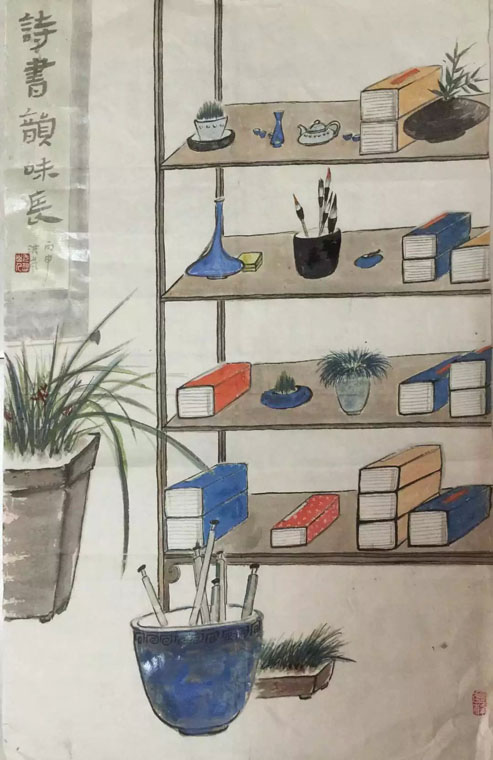 詩書韻味長
丙申